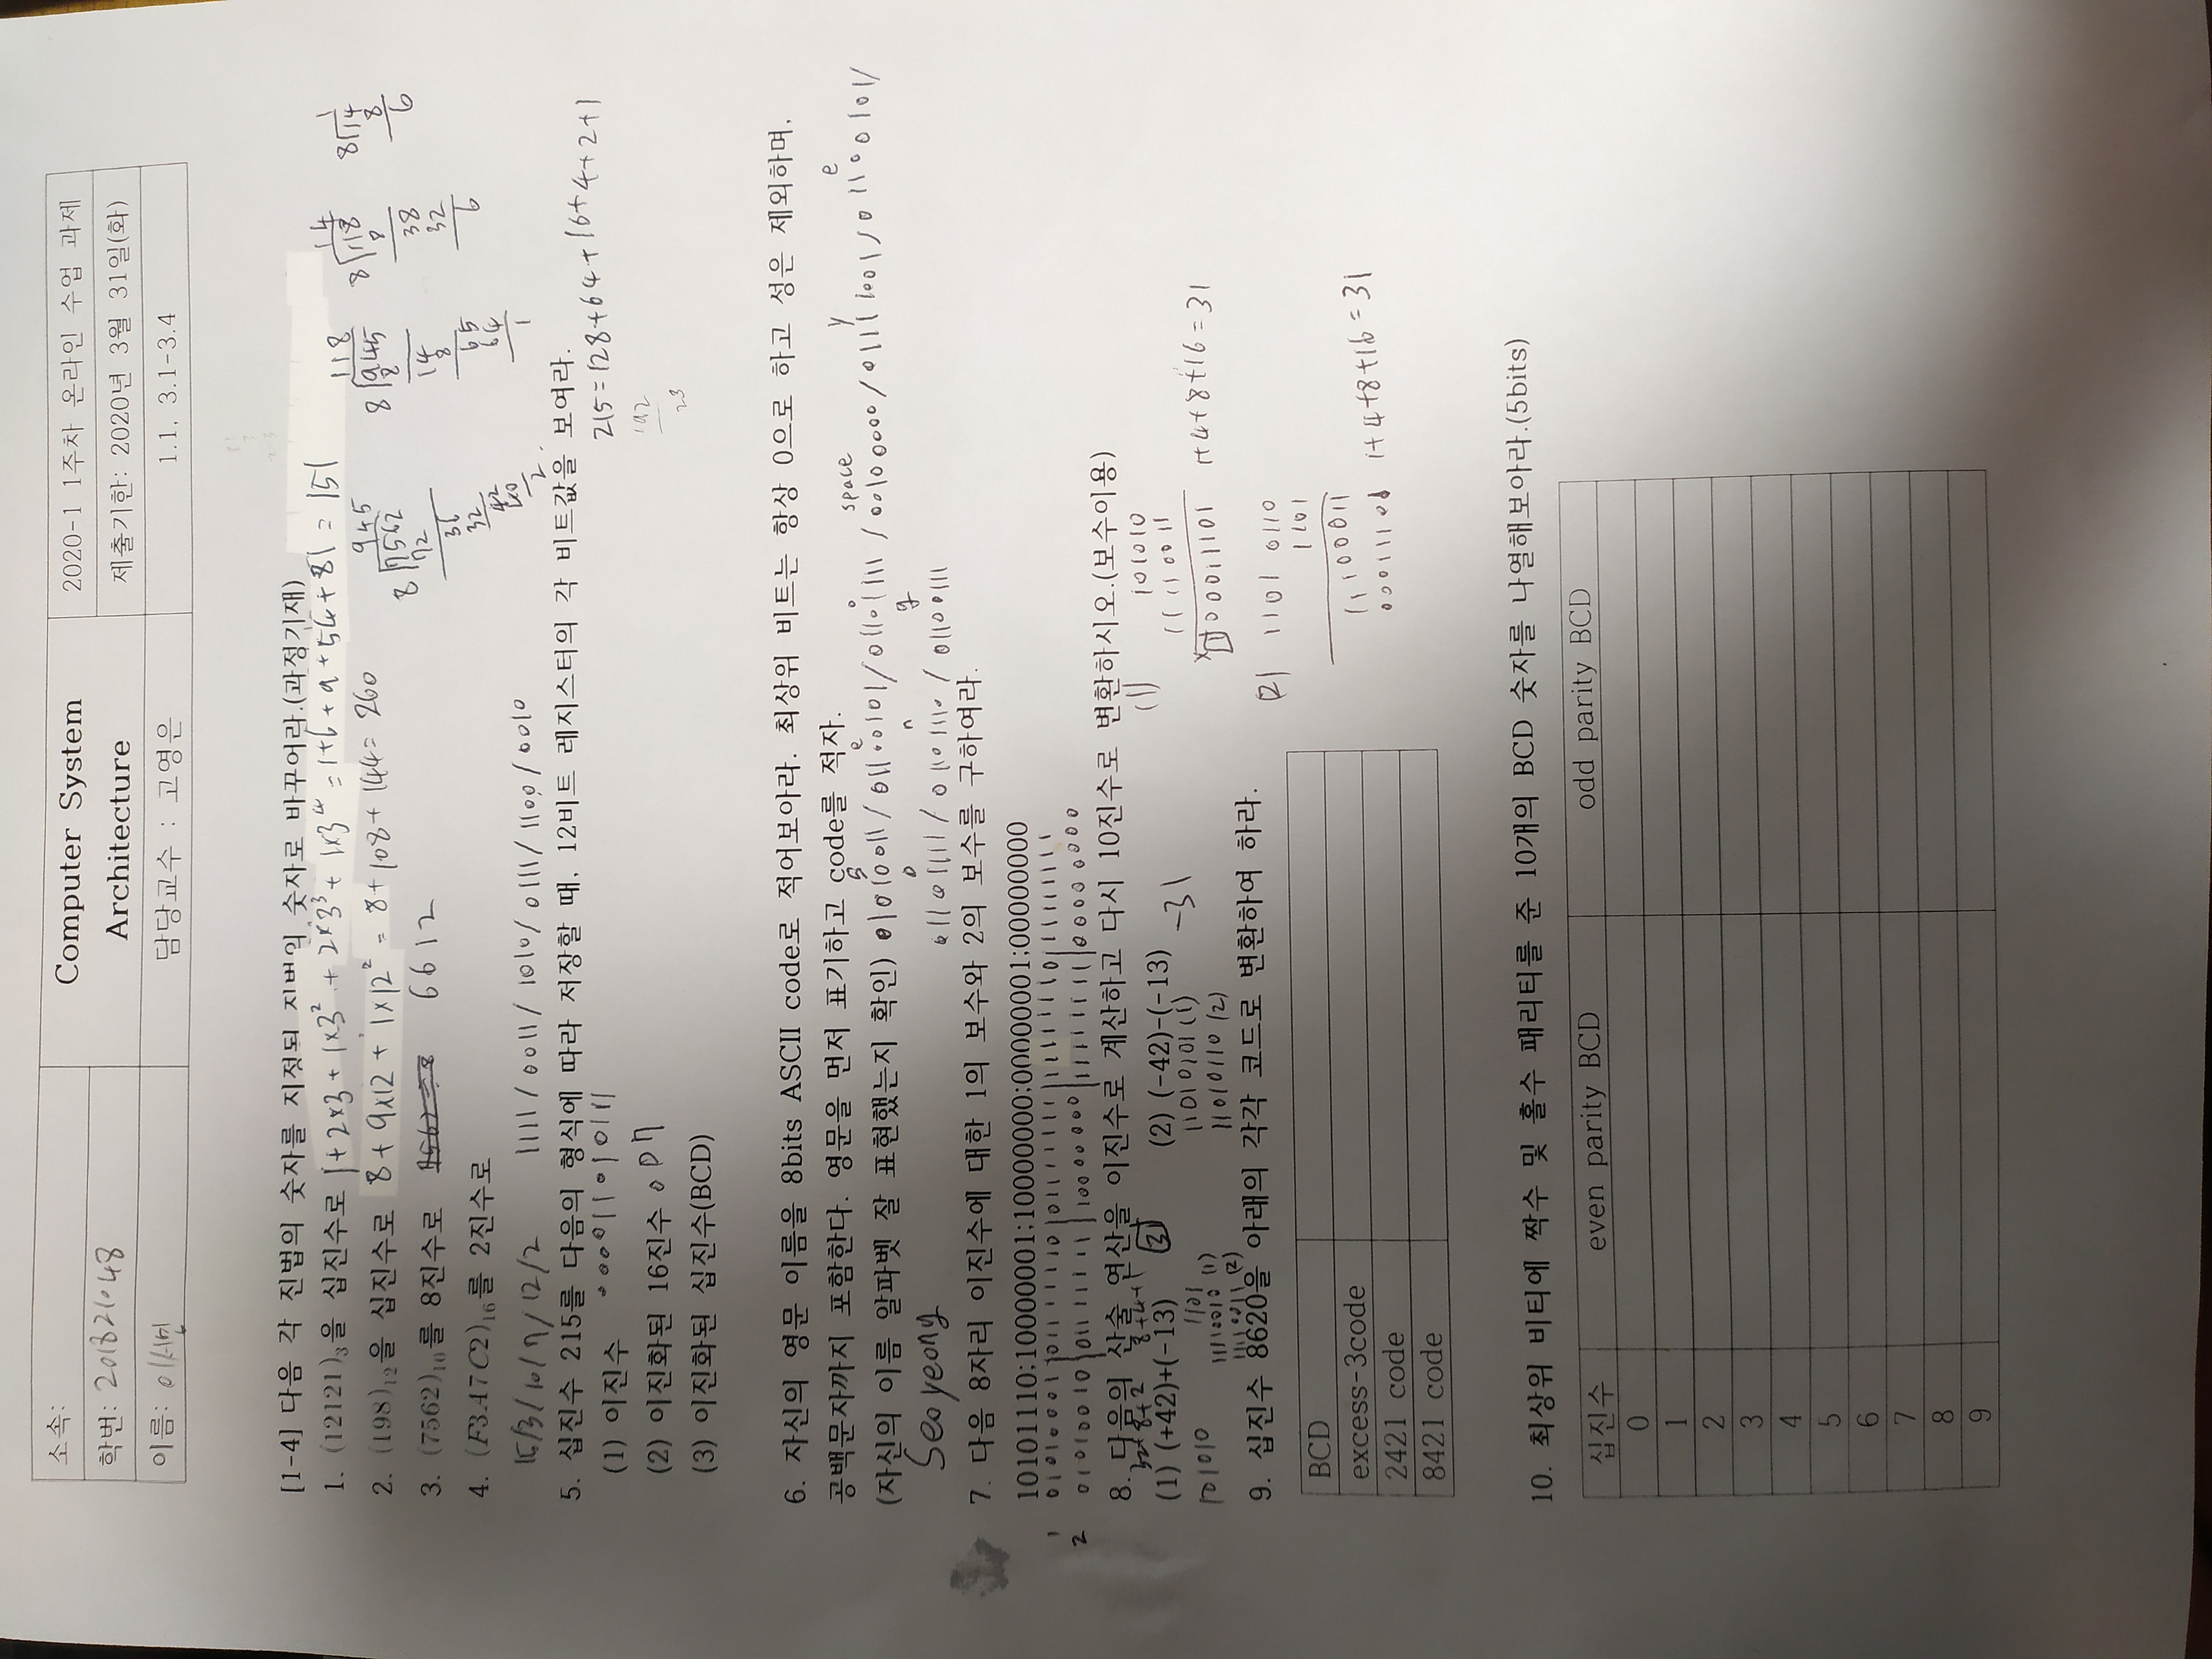 소속:
학번: 201821048
이름:
Computer System
Architecture
담당교수 : 고영은
2020-1 1주차 온라인 수업 과제
제출기한: 2020년 3월 31일(화)
1.1, 3.1-3.4
[1-4] 다음 각 진법의 숫자를 지정된 진법의 숫자로 바꾸어라.(과정기재)
1. (12121)₃을 십진수로 1+2×3+1×3²+2×3³+1×3⁴=1+6+9+54+81=151
2. (198)₁₂을 십진수로 8+9×12+1×12²=8+108+144=260
3. (7562)₁₀를 8진수로 6612
945
8 7562
72
36
32
42
40
2
118
8 945
8
14
8
65
64
1
14
8 118
8
38
32
6
1
8 14
8
6
4. (F3A7C2)₁₆를 2진수로
15/3/10/7/12/2 1111/0011/1010/0111/1100/0010
5. 십진수 215를 다음의 형식에 따라 저장할 때, 12비트 레지스터의 각 비트값을 보여라.
215=128+64+16+4+2+1
192
23
(1) 이진수 000011010111
(2) 이진화된 16진수 0D7
(3) 이진화된 십진수(BCD)
6. 자신의 영문 이름을 8bits ASCII code로 적어보아라. 최상위 비트는 항상 0으로 하고 성은 제외하며,
공백문자까지 포함한다. 영문을 먼저 표기하고 code를 적자.
S e o space y e
(자신의 이름 알파벳 잘 표현했는지 확인) 01010011/01100101/01101111/00100000/01111001/01100101/
o n g
Seo yeong 01101111/01101110/01100111
7. 다음 8자리 이진수에 대한 1의 보수와 2의 보수를 구하여라.
10101110;10000001;10000000;00000001;00000000
1 01010001|01111110|01111111|11111110|11111111
2 01010010|01111111|10000000|11111111|00000000
8. 다음의 산술 연산을 이진수로 계산하고 다시 10진수로 변환하시오.(보수이용)
32+8+2 8+4+1
(1) (+42)+(-13) 31
101010 1101
11110010 (1)
11110011 (2)
(2) (-42)-(-13) -31
11010101 (1)
11010110 (2)
(1) 101010
11110011
100011101 1+4+8+16=31
(2) 1101 0110
1101
11100011
00011101 1+4+8+16=31
9. 십진수 8620을 아래의 각각 코드로 변환하여 하라.
BCD
excess-3code
2421 code
8421 code
10. 최상위 비티에 짝수 및 홀수 패리티를 준 10개의 BCD 숫자를 나열해보아라.(5bits)
십진수 even parity BCD odd parity BCD
0
1
2
3
4
5
6
7
8
9